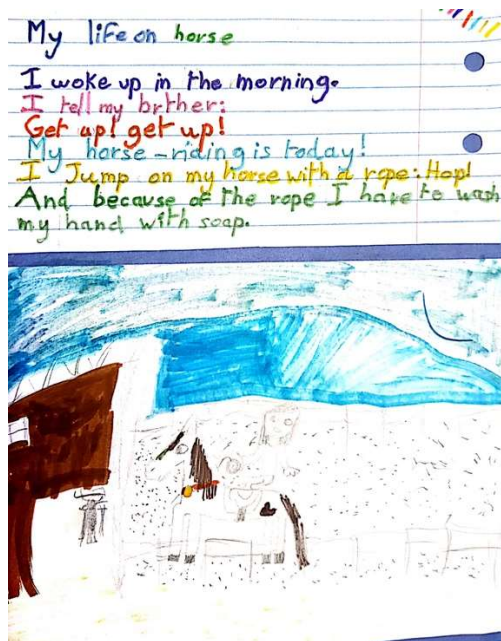 My life on horse
I woke up in the morning.
I tell my brther:
Get ap! get up!
My horse-riding is today!
I Jump on my horse with a rope: Hop!
And because of the rope I have to wash
my hand with soap.